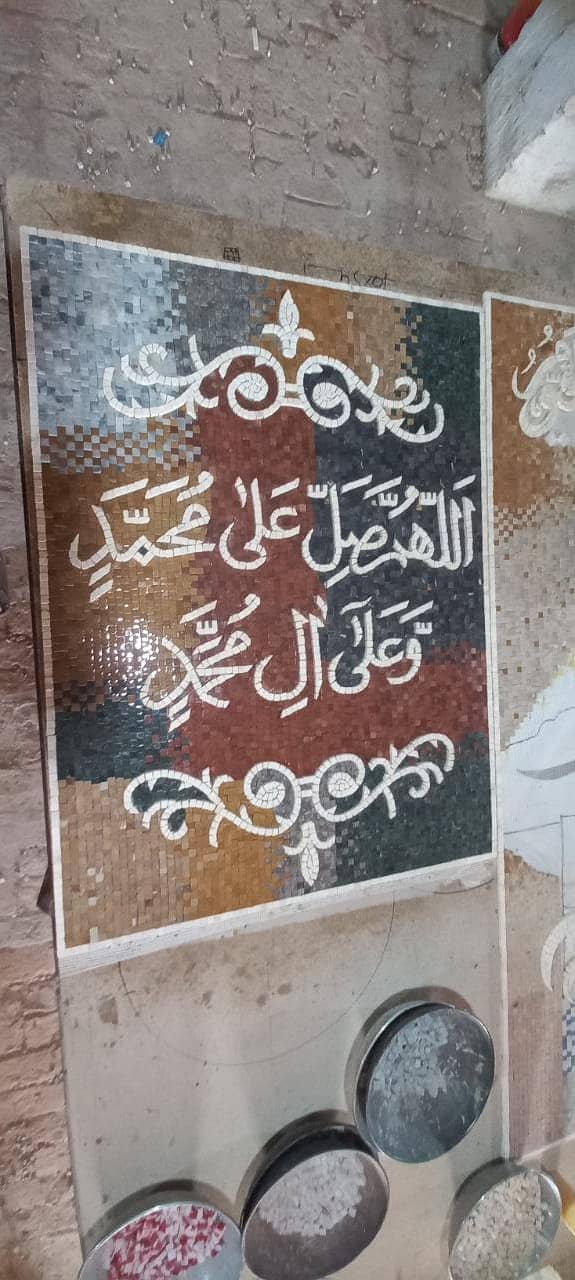 اَللّٰهُمَّ صَلِّ عَلىٰ مُحَمَّدٍ
وَّعَلٰٓى اٰلِ مُحَمَّدٍ